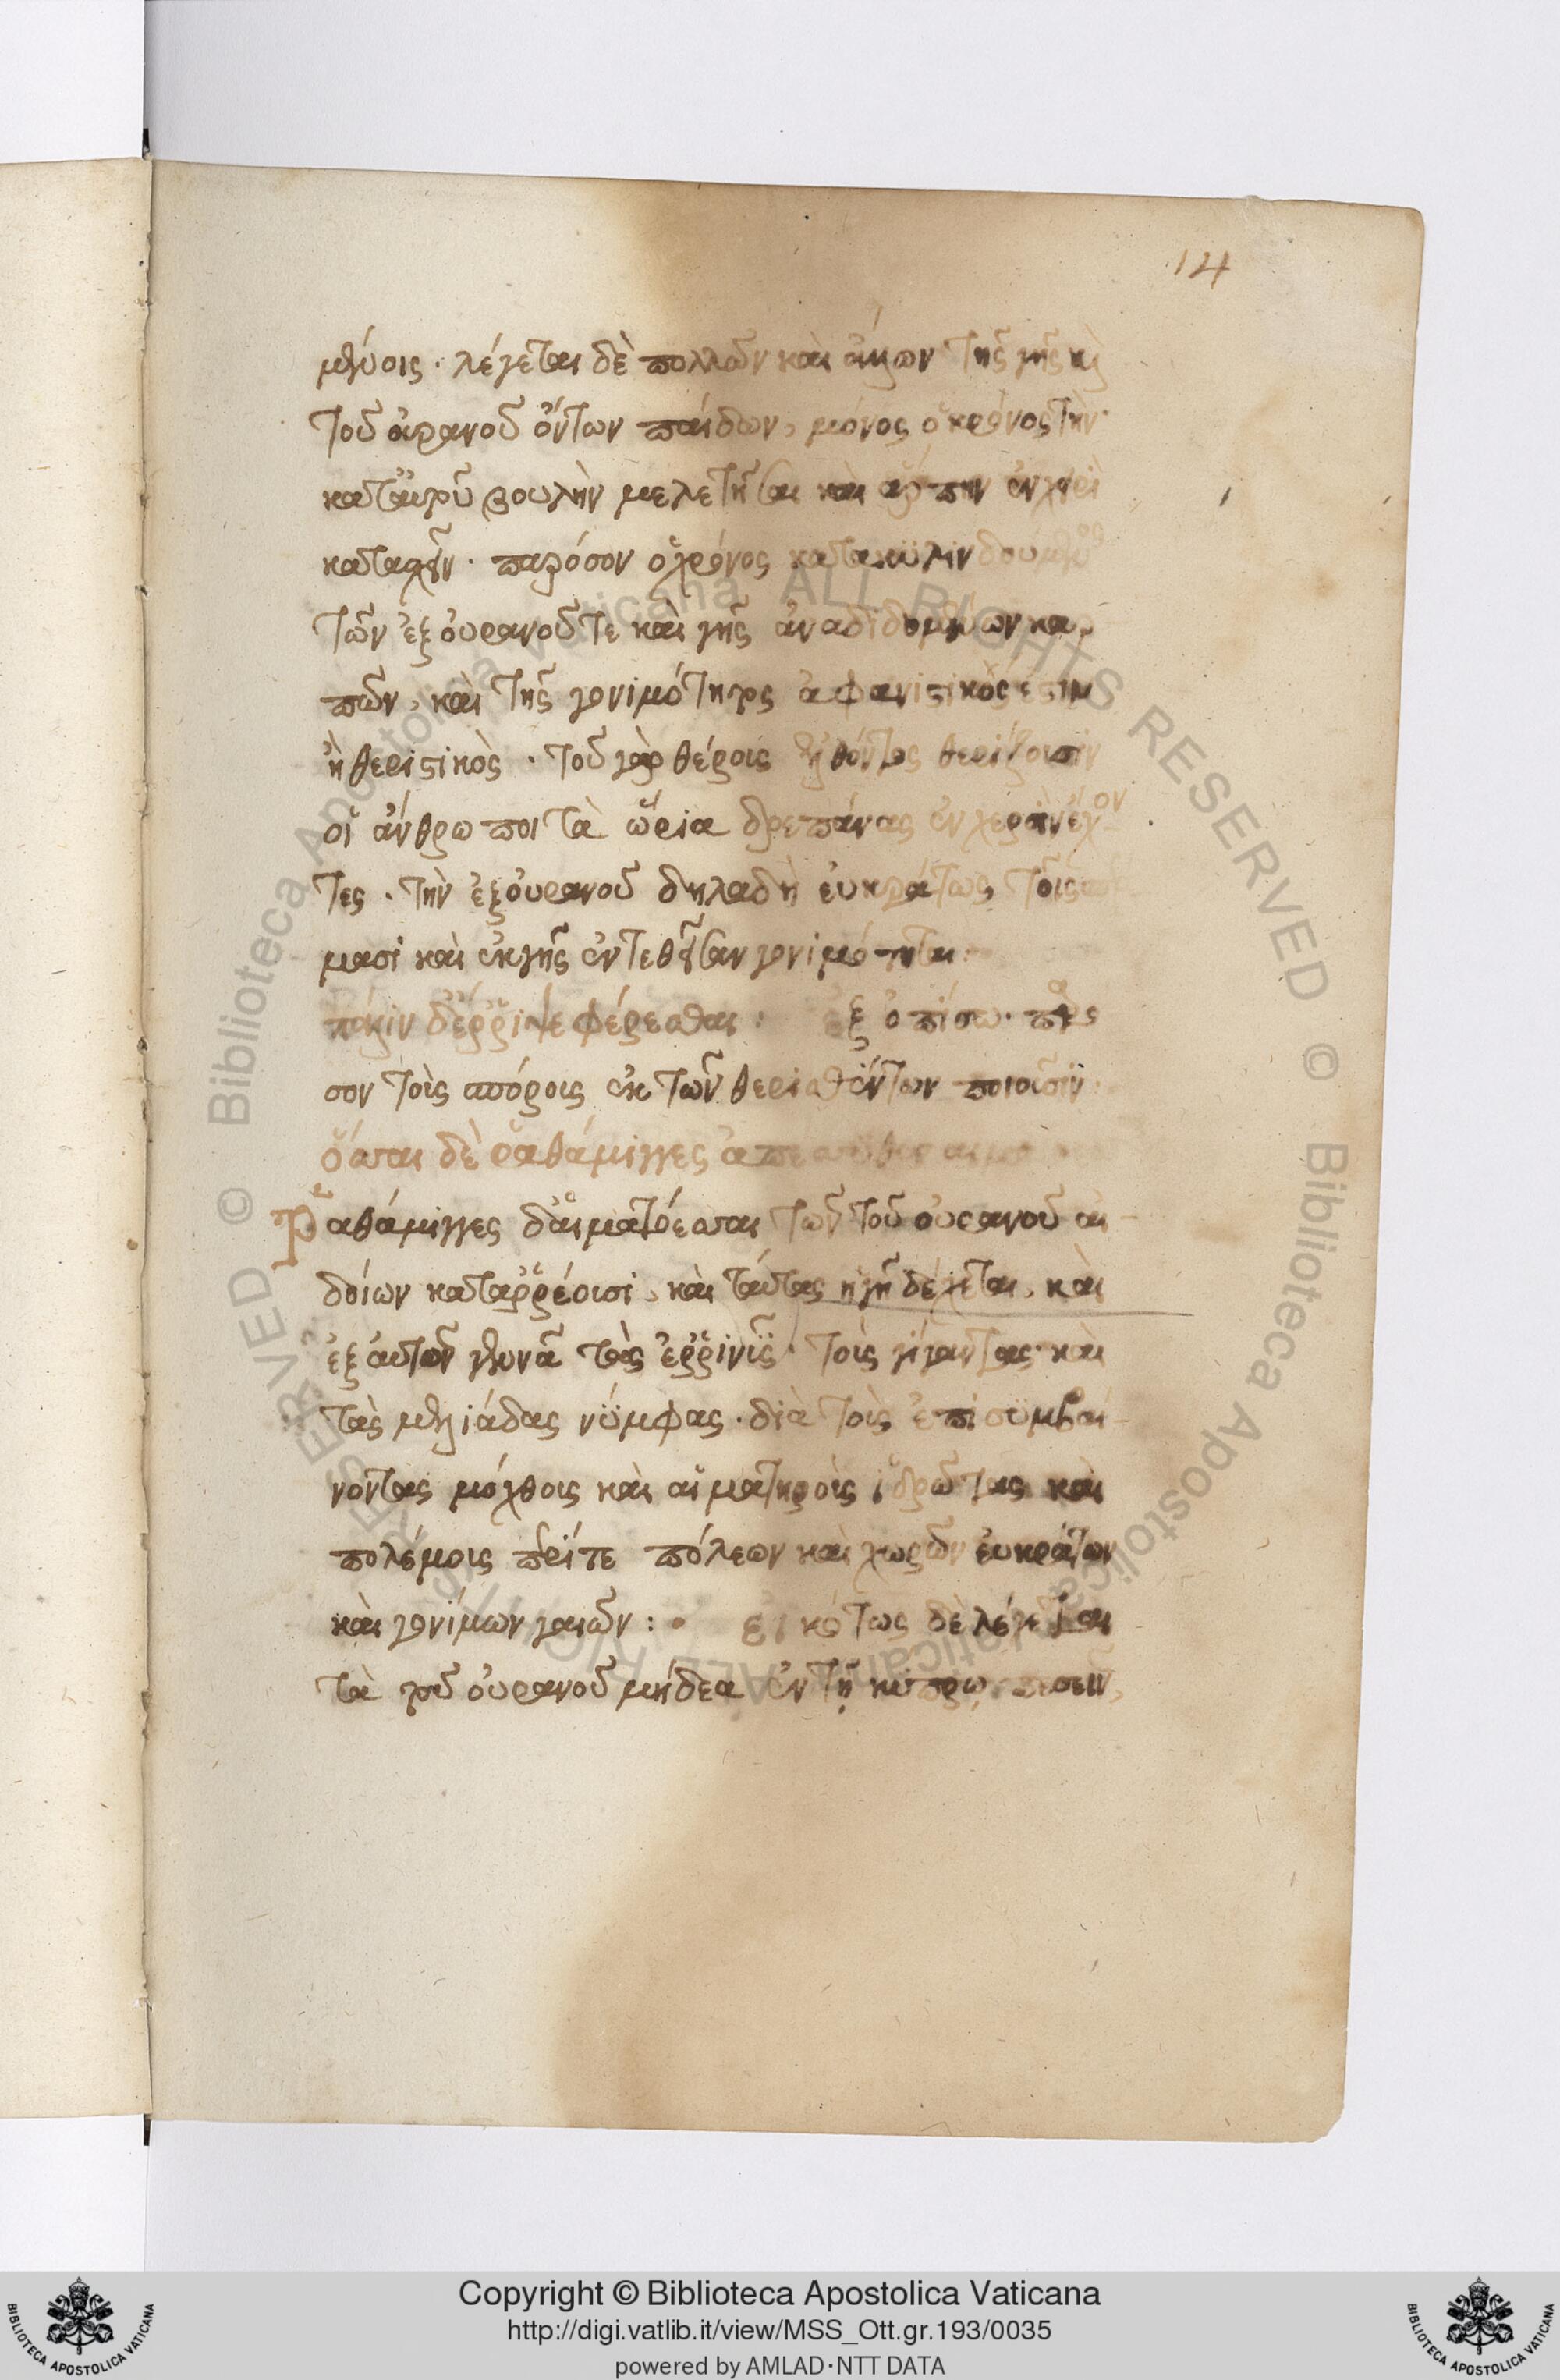 14
μένοις. λέγεται δὲ πολλῶν καὶ ἄλλων τῆς γῆς καὶ
τοῦ οὐρανοῦ ὄντων παίδων, μόνος ὁ κρόνος τὴν
κατ αὐτοῦ βουλὴν μελετῆσαι καὶ ἅρπην ἐν χειρὶ
κατασχεῖν. παρόσον ὁ χρόνος
τῶν ἐξ οὐρανοῦ τε καὶ γῆς ἀναδιδομένων καρ
πῶν, καὶ τῆς γονιμότητος ἀφανιστικός ἐστιν
ἢ θεριστικὸς. τοῦ γὰρ θέρους ἐλθόντος θερίζουσιν
οἱ ἄνθρωποι τὰ ὥρια δρεπάνας ἐν χερσὶν ἔχον
τες. τὴν ἐξ οὐρανοῦ δηλαδὴ εὐκράτως τοῖς
μασι καὶ ἐκ γῆς ἐντεθεῖσαν γονιμότητα:
πάλιν δ' ἔρριψε φέρεσθαι: ἐξ ὀπίσω.
σον τοὺς σπόρους ἐκ τῶν θερισθέντων ποιοῦσιν.
ὅσσαι δὲ ῥαθάμιγγες
Ῥαθάμιγγες δ' αἱματόεσσαι τῶν τοῦ οὐρανοῦ αἰ-
δοίων καταρρέουσι, καὶ ταύτας ἡ γῆ δέχεται, καὶ
ἐξ αὐτῶν γεννᾶ τὰς ἐρρινῦς. τοὺς γίγαντας καὶ
τὰς μελιάδας νύμφας. διὰ τοὺς ἐπισυμβαί-
νοντας μόχθους καὶ αἱματηροὺς ἱδρῶτας καὶ
πολέμους περί τε πόλεων καὶ χωρῶν εὐκράτων
καὶ γονίμων γαιῶν: εἰκότως δὲ λέγεται
τὰ τοῦ οὐρανοῦ μήδεα ἐν τῇ κύπρῳ πεσεῖν,
Copyright © Biblioteca Apostolica Vaticana
http://digi.vatlib.it/view/MSS_Ott.gr.193/0035
powered by AMLAD·NTT DATA
BIBLIOTECA APOSTOLICA VATICANA
BIBLIOTECA APOSTOLICA VATICANA
© Biblioteca Apostolica Vaticana ALL RIGHTS RESERVED
© Biblioteca Apostolica Vaticana ALL RIGHTS RESERVED